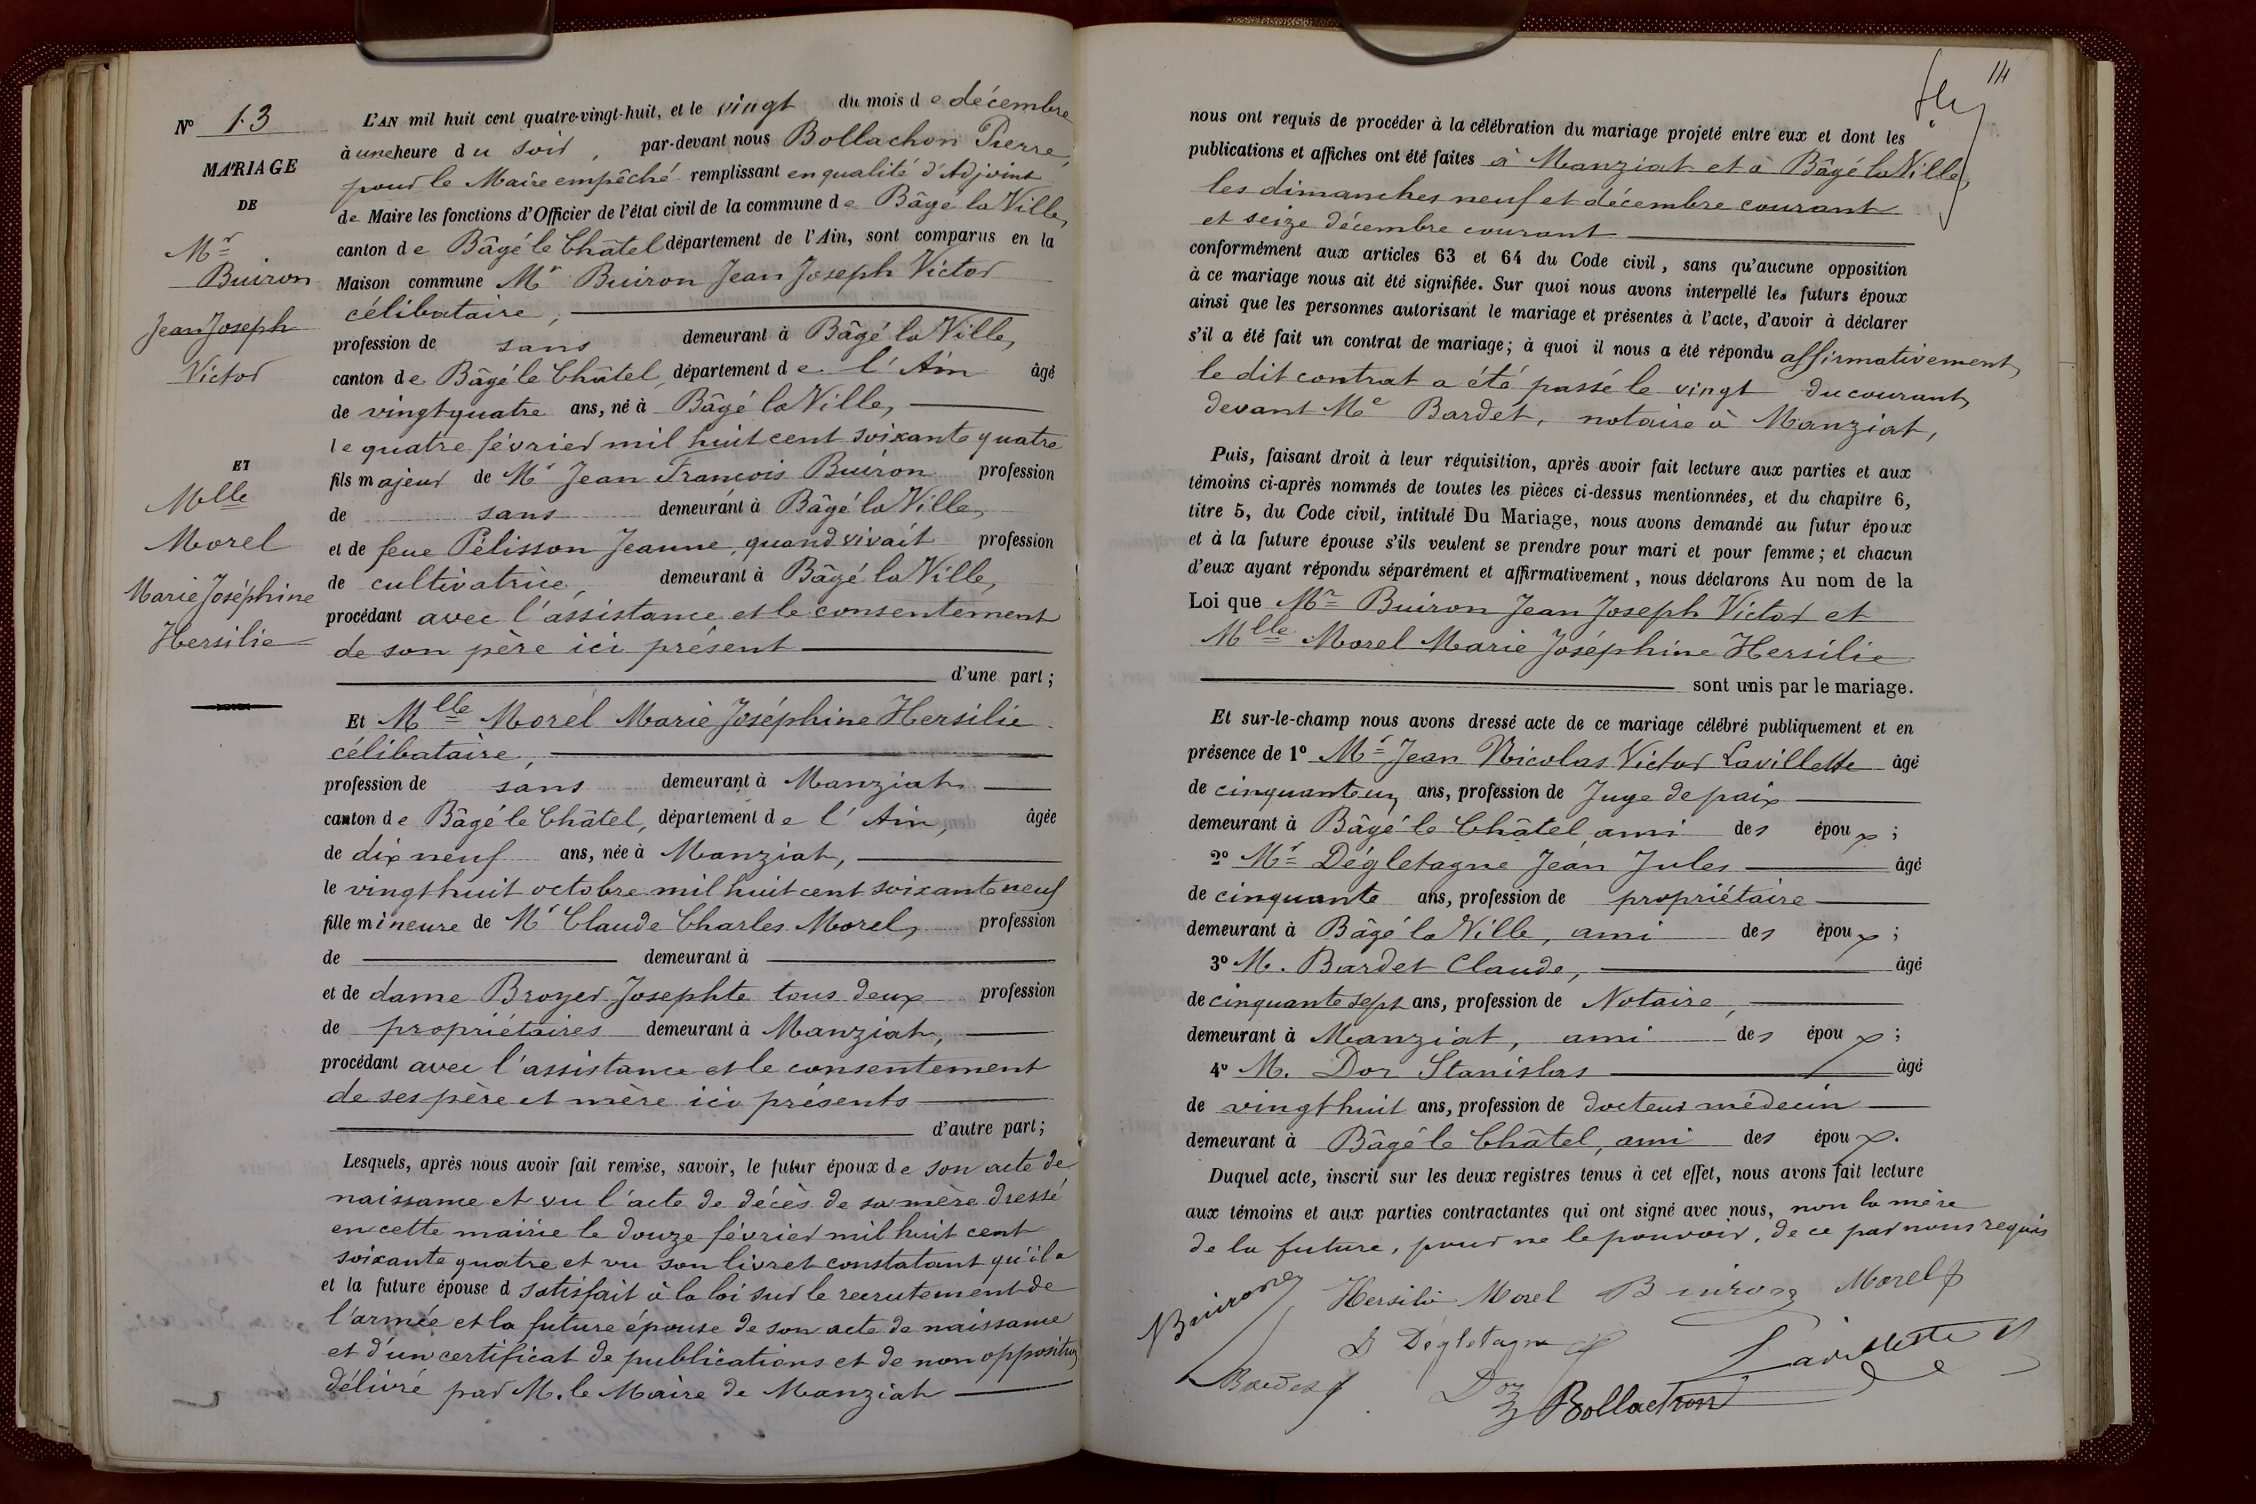 N° 13
MARIAGE
DE
Mr
Buiron
Jean Joseph
Victor
ET
Melle
Morel
Marie Joséphine
Hersilie
L'AN mil huit cent quatre-vingt-huit, et le vingt du mois de décembre
à une heure du soir, par-devant nous Bollachon Pierre,
pour le Maire empêché remplissant en qualité d'Adjoint
de Maire les fonctions d'Officier de l'état civil de la commune de Bâgé la Ville,
canton de Bâgé le Châtel département de l'Ain, sont comparus en la
Maison commune Mr Buiron Jean Joseph Victor
célibataire,
profession de sans demeurant à Bâgé la Ville,
canton de Bâgé le Châtel, département de l'Ain âgé
de vingt quatre ans, né à Bâgé la Ville,
le quatre février mil huit cent soixante quatre
fils majeur de Mr Jean François Buiron profession
de sans demeurant à Bâgé la Ville,
et de feue Pélisson Jeanne, quand vivait profession
de cultivatrice, demeurant à Bâgé la Ville,
procédant avec l'assistance et le consentement
de son père ici présent
d'une part;
Et Mlle Morel Marie Joséphine Hersilie
célibataire
profession de sans demeurant à Manziat,
canton de Bâgé le Châtel, département de l'Ain, âgée
de dix neuf ans, née à Manziat,
le vingt huit octobre mil huit cent soixante neuf
fille mineure de Mr Claude Charles Morel, profession
de demeurant à
et de dame Broyer Josephte tous deux profession
de propriétaires demeurant à Manziat,
procédant avec l'assistance et le consentement
de ses père et mère ici présents
d'autre part;
Lesquels, après nous avoir fait remise, savoir, le futur époux de son acte de
naissance et vu l'acte de décès de sa mère dressé
en cette mairie le douze février mil huit cent
soixante quatre et vu son livret constatant qu'il a
et la future épouse d satisfait à la loi sur le recrutement de
l'armée et la future épouse de son acte de naissance
et d'un certificat de publications et de non opposition
délivré par M. le Maire de Manziat
14
nous ont requis de procéder à la célébration du mariage projeté entre eux et dont les
publications et affiches ont été faites à Manziat et à Bâgé la Ville,
les dimanches neuf et décembre courant
et seize décembre courant
conformément aux articles 63 et 64 du Code civil, sans qu'aucune opposition
à ce mariage nous ait été signifiée. Sur quoi nous avons interpellé les futurs époux
ainsi que les personnes autorisant le mariage et présentes à l'acte, d'avoir à déclarer
s'il a été fait un contrat de mariage; à quoi il nous a été répondu affirmativement,
le dit contrat a été passé le vingt du courant,
devant Me Bardet, notaire à Manziat,
Puis, faisant droit à leur réquisition, après avoir fait lecture aux parties et aux
témoins ci-après nommés de toutes les pièces ci-dessus mentionnées, et du chapitre 6,
titre 5, du Code civil, intitulé Du Mariage, nous avons demandé au futur époux
et à la future épouse s'ils veulent se prendre pour mari et pour femme; et chacun
d'eux ayant répondu séparément et affirmativement, nous déclarons Au nom de la
Loi que Mr Buiron Jean Joseph Victor et
Mlle Morel Marie Joséphine Hersilie
sont unis par le mariage.
Et sur-le-champ nous avons dressé acte de ce mariage célébré publiquement et en
présence de 1° Mr Jean Nicolas Victor Lavillette âgé
de cinquante un ans, profession de Juge de paix
demeurant à Bâgé le Châtel, ami des époux;
2° Mr Dégletagne Jean Jules âgé
de cinquante ans, profession de propriétaire
demeurant à Bâgé la Ville, ami des époux;
3° M. Bardet Claude, âgé
de cinquante sept ans, profession de Notaire,
demeurant à Manziat, ami des époux;
4° M. Doz Stanislas âgé
de vingt huit ans, profession de docteur médecin
demeurant à Bâgé le Châtel, ami des époux.
Duquel acte, inscrit sur les deux registres tenus à cet effet, nous avons fait lecture
aux témoins et aux parties contractantes qui ont signé avec nous, non la mère
de la future, pour ne le pouvoir, de ce par nous requis
Buiron Hersilie Morel Buiron Morel
Dégletagne Lavillette
Bardet Doz Bollachon